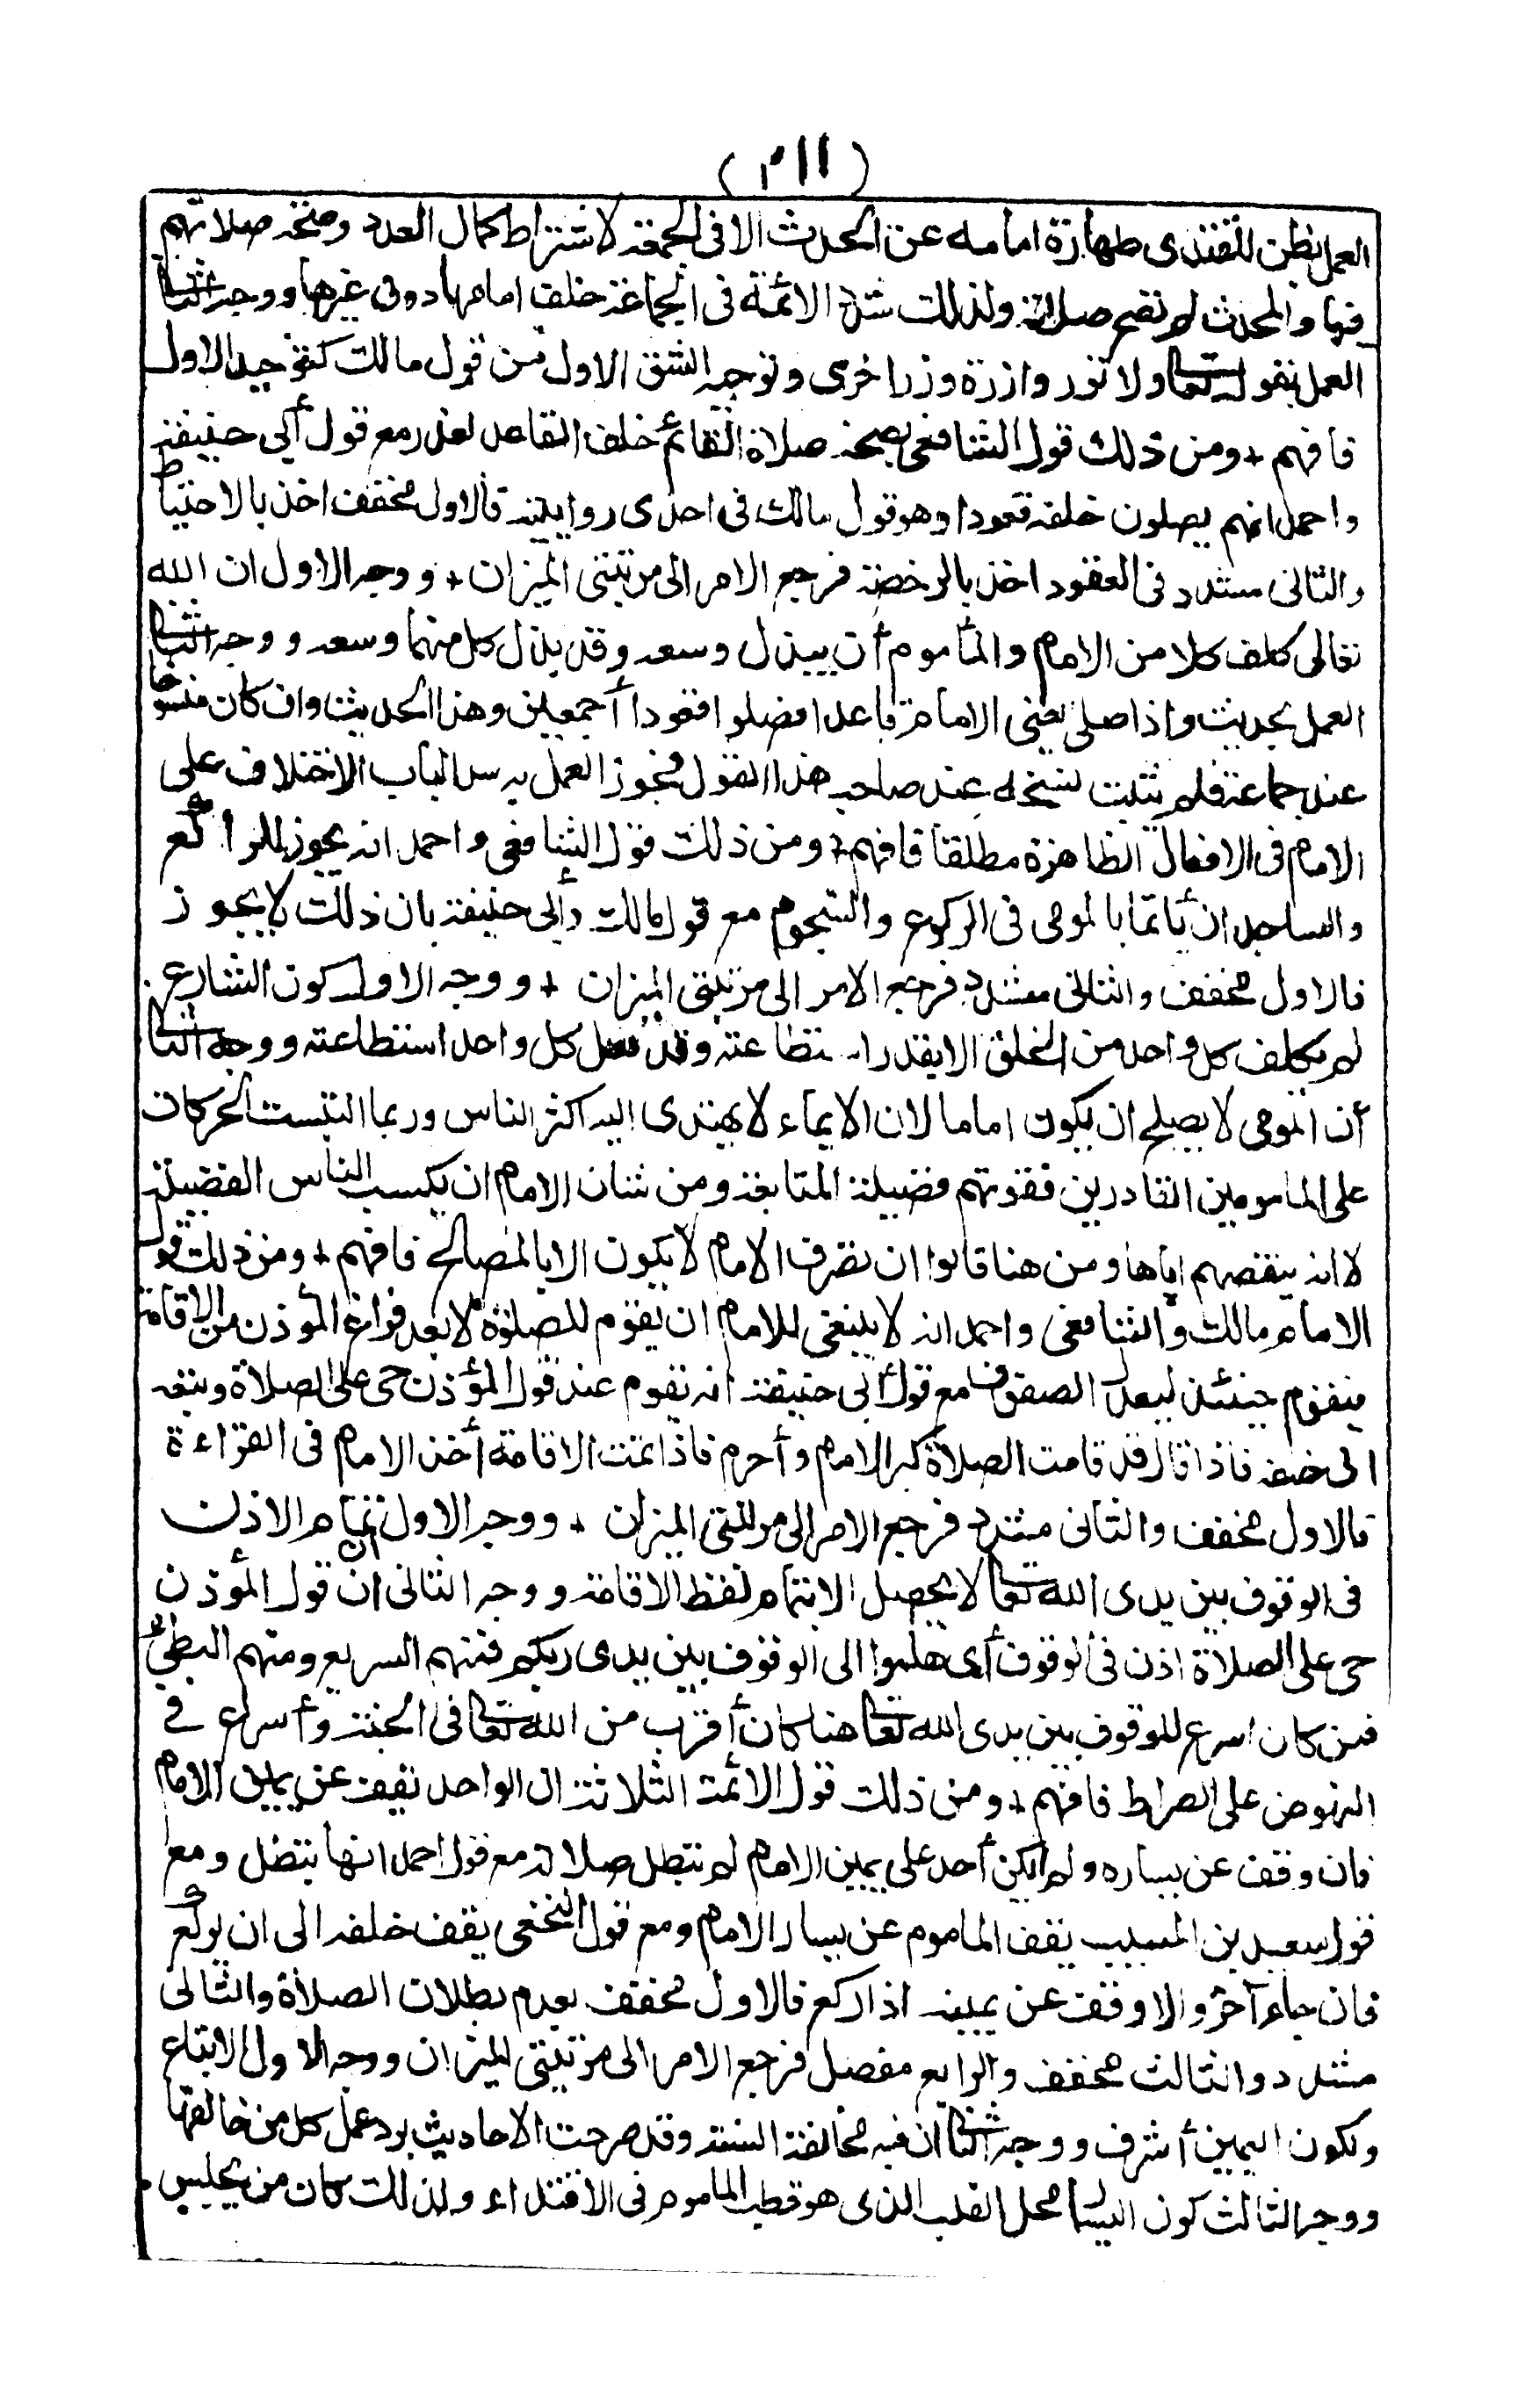 (١١٢)
العمل بظن المقتدى طهارة امامه عن الحدث الا فى الجمعة لاشتراط كمال العدد وصحة صلاتهم
فيها والمحدث لم تصح صلاته ولذلك شدد الائمة فى الجماعة خلف امامها دون غيرها ووجه الثانى
العمل بقوله تعالى ولا تزر وازرة وزر اخرى وتوجيه الشق الاول من قول مالك كتوجيه الاول
فافهم + ومن ذلك قول الشافعى بصحة صلاة القائم خلف القاعد لعذر مع قول أبى حنيفة
واحمد انهم يصلون خلفه قعودا وهو قول مالك فى احدى روايتيه فالاول مخفف اخذ بالاحتياط
والثانى مشدد فى القعود اخذ بالرخصة فرجع الامر الى مرتبتى الميزان + ووجه الاول ان الله
تعالى كلف كلا من الامام والمأموم أن يبذل وسعه وقد بذل كل منهما وسعه ووجه الثانى
العمل بحديث واذا صلى يعنى الامام قاعدا فصلوا قعودا أجمعين وهذا الحديث وان كان منسوخا
عند جماعة فلم يثبت نسخه عند صاحب هذا القول فجوز العمل به سدا لباب الاختلاف على
الامام فى الافعال الظاهرة مطلقا فافهم + ومن ذلك قول الشافعى واحمد انه يجوز للراكع
والساجد ان يأتما بالمومى فى الركوع والسجود مع قول مالك وأبى حنيفة بان ذلك لا يجوز
فالاول مخفف والثانى مشدد فرجع الامر الى مرتبتى الميزان + ووجه الاول كون الشارع
لم يكلف كل واحد من الخلق الا بقدر استطاعته وقد فعل كل واحد استطاعته ووجه الثانى
أن المومى لا يصلح ان يكون اماما لان الايماء لا يهتدى اليه اكثر الناس وربما التبست الحركات
على المامومين القادرين ففوتهم فضيلة المتابعة ومن شان الامام ان يكسب الناس الفضيلة
لا انه ينقصهم اياها ومن هنا قالوا ان تصرف الامام لا يكون الا بالمصالح فافهم + ومن ذلك قول
الامام مالك والشافعى واحمد انه لا ينبغى للامام ان يقوم للصلوة الا بعد فراغ المؤذن من الاقامة
فيقوم حينئذ ليعدل الصفوف مع قول أبى حنيفة انه يقوم عند قول المؤذن حى على الصلاة ويتبعه
الى خلفه فاذا قال قد قامت الصلاة كبر الامام وأحرم فاذا تمت الاقامة أخذ الامام فى القراءة
فالاول مخفف والثانى مشدد فرجع الامر الى مرتبتى الميزان + ووجه الاول ان تمام الاذن
فى الوقوف بين يدى الله تعالى لا يحصل الا بتمام لفظ الاقامة ووجه الثانى ان قول المؤذن
حى على الصلاة اذن فى الوقوف أى هلموا الى الوقوف بين يدى ربكم فمنهم السريع ومنهم البطىء
فمن كان اسرع للوقوف بين يدى الله تعالى هنا كان أقرب من الله تعالى فى الجنة وأسرع فى
النهوض على الصراط فافهم + ومن ذلك قول الائمة الثلاثة ان الواحد يقف عن يمين الامام
فان وقف عن يساره ولم يكن أحد على يمين الامام لم تبطل صلاته مع قول احمد انها تبطل ومع
قول سعيد بن المسيب يقف الماموم عن يسار الامام ومع قول النخعى يقف خلفه الى ان يركع
فان جاء آخر والا وقف عن يمينه اذا ركع فالاول مخفف بعدم بطلان الصلاة والثانى
مشدد والثالث مخفف والرابع مفصل فرجع الامر الى مرتبتى الميزان ووجه الاول الاتباع
ولكون اليمين أشرف ووجه الثانى ان فيه مخالفة السنة وقد صرحت الاحاديث برد عمل كل من خالفها
ووجه الثالث كون اليسار محل القلب الذى هو قطب الماموم فى الاقتداء ولذلك كان من يجلس